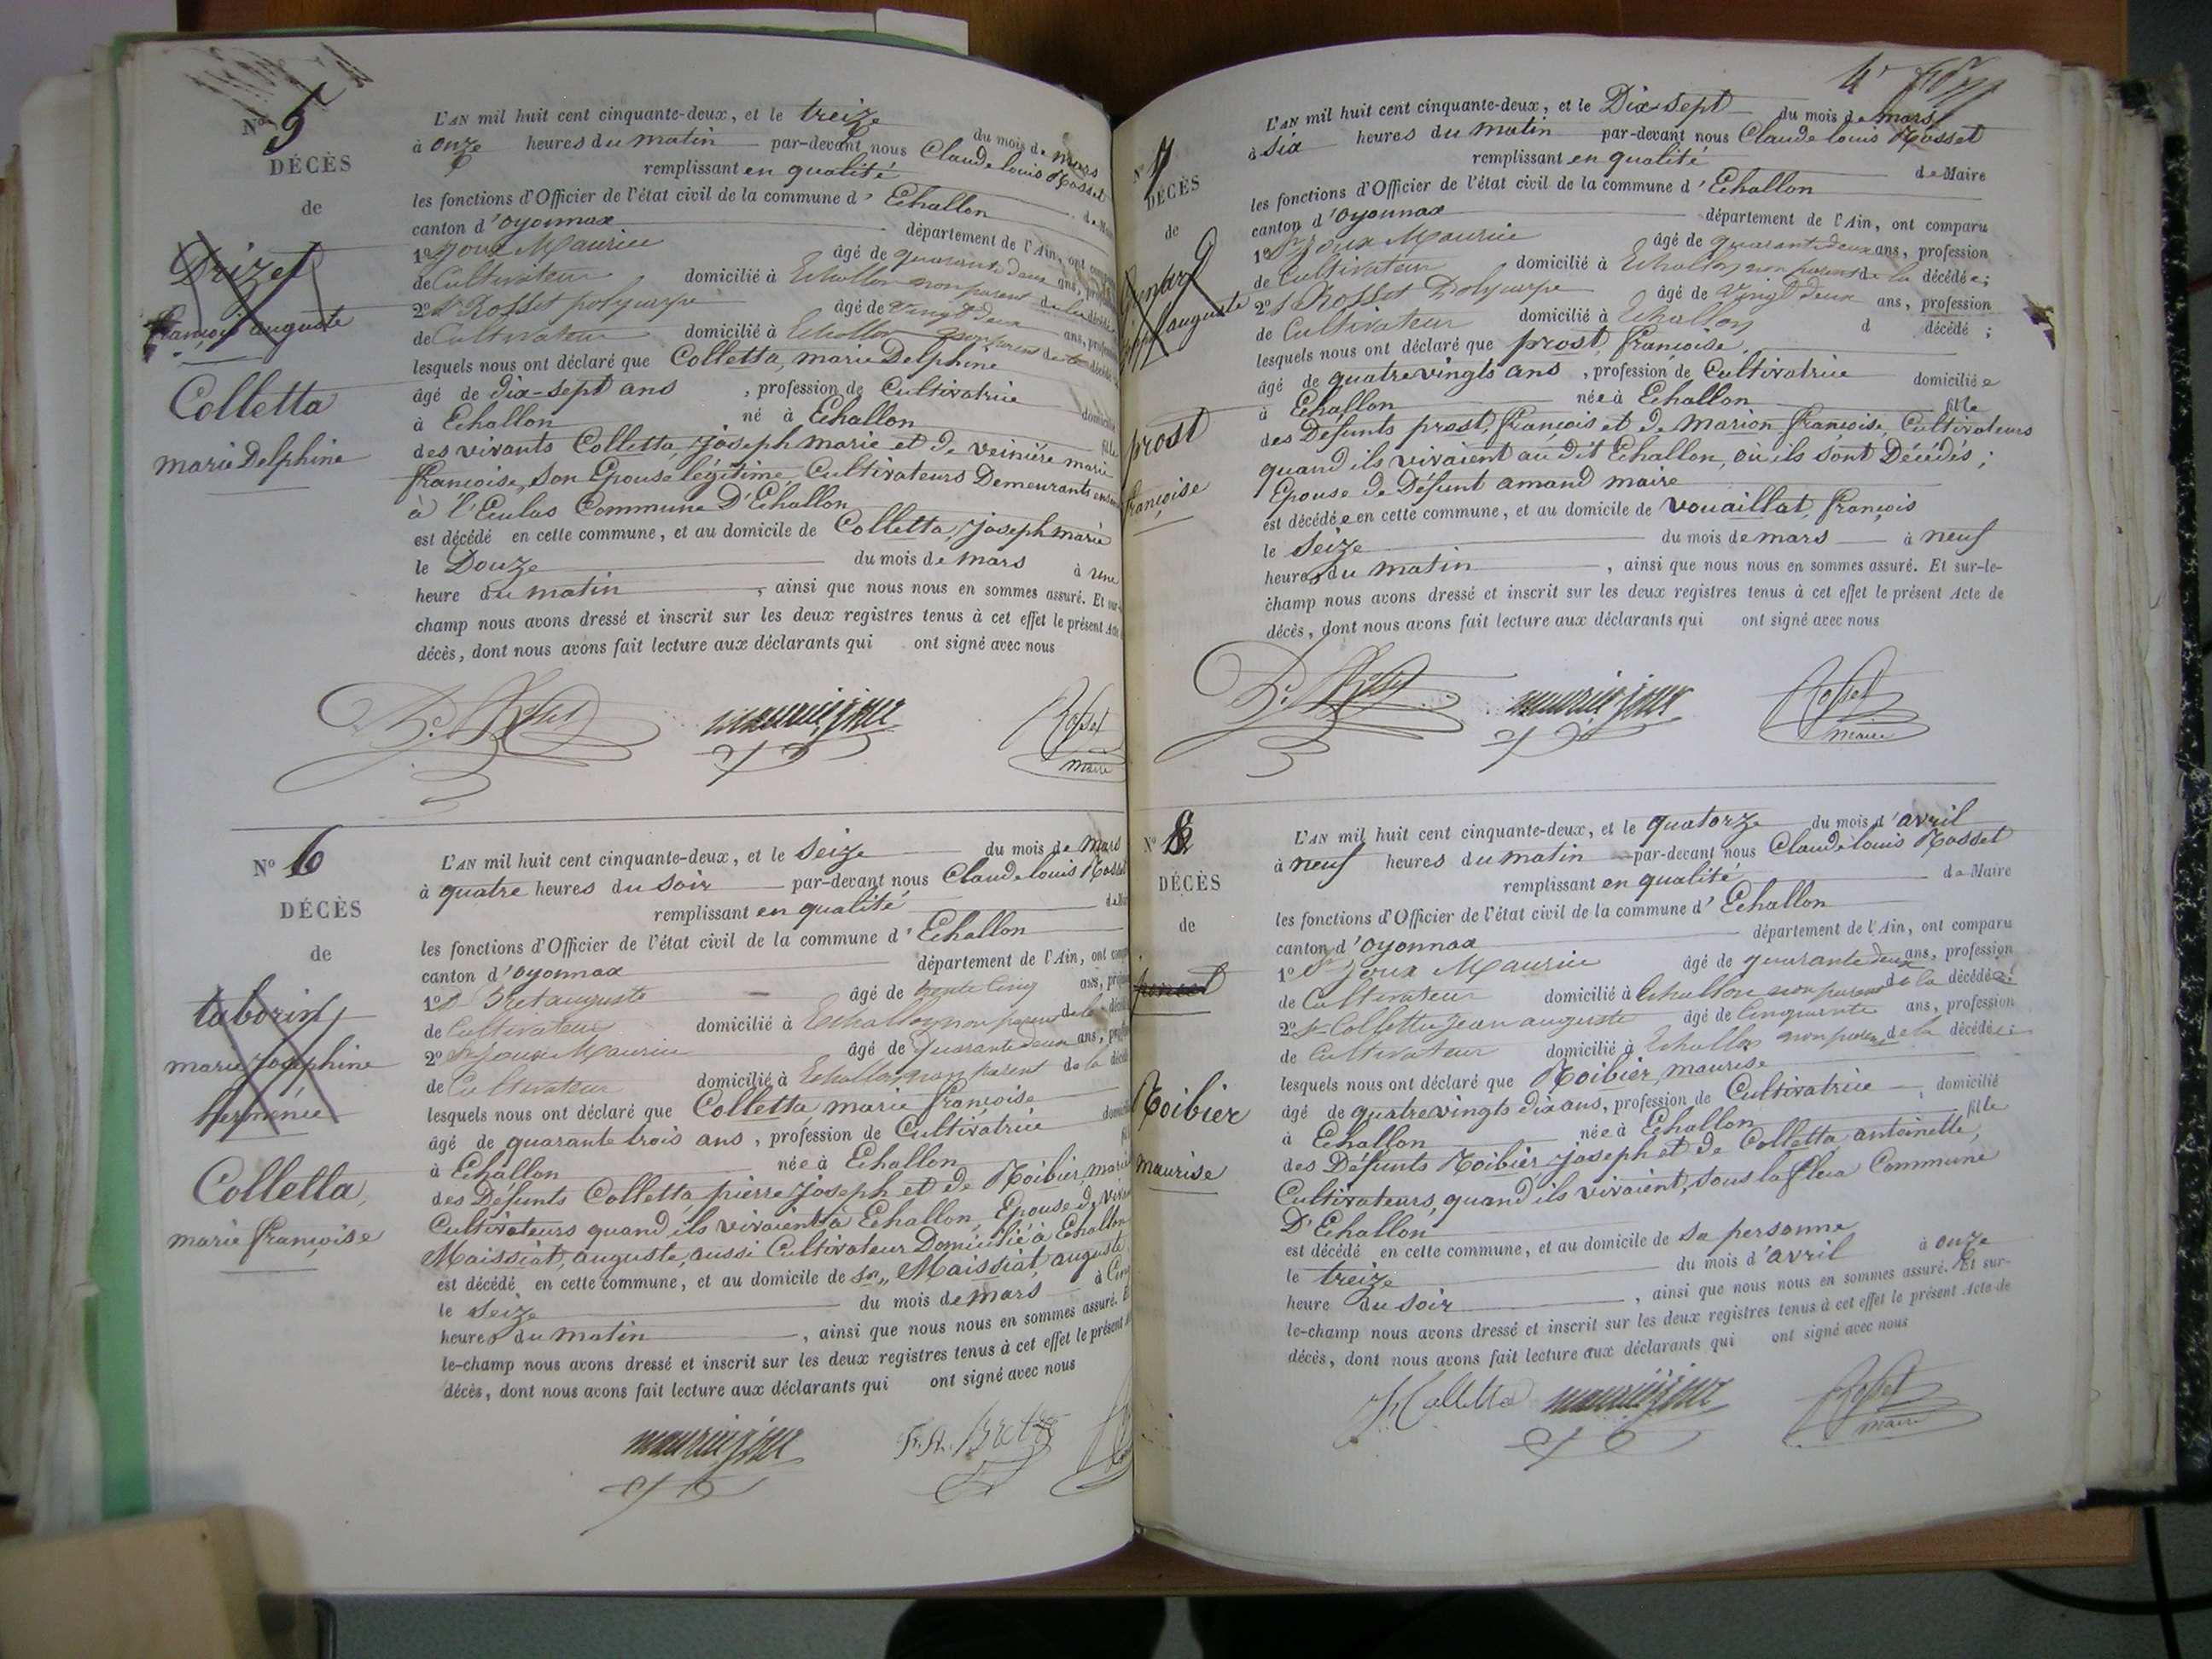 Nº 5
DÉCÈS
de
Drizet
françois auguste
Colletta
marie Delphine
L'AN mil huit cent cinquante-deux, et le treize du mois de mars
à onze heures du matin par-devant nous Claude louis Rosset
remplissant en qualité de Maire
les fonctions d'Officier de l'état civil de la commune d' Echallon
canton d'oyonnax département de l'Ain, ont
1º Joux Maurice âgé de quarante deux ans,
de Cultivateur domicilié à Echallon non parent de la
2º Sr Rosset polycarpe âgé de vingt deux ans,
de Cultivateur domicilié à Echallon non parent de la
lesquels nous ont déclaré que Colletta, marie Delphine
âgé de dix-sept ans, profession de Cultivatrice
à Echallon né à Echallon fille
des vivants Colletta, joseph marie et de veinière marie
françoise, son Epouse légitime, Cultivateurs Demeurants
à l'Eculas Commune D'Echallon
est décédé en cette commune, et au domicile de Colletta, joseph marie
le Douze du mois de mars à une
heure du matin, ainsi que nous nous en sommes assuré. Et sur-
champ nous avons dressé et inscrit sur les deux registres tenus à cet effet le présent Acte
décès, dont nous avons fait lecture aux déclarants qui ont signé avec nous
P. Rosset maurice joux Rosset
maire
Nº 6
DÉCÈS
de
taborin
marie Josephine
herminie
Colletta,
marie françoise
L'AN mil huit cent cinquante-deux, et le seize du mois de mars
à quatre heures du soir par-devant nous Claude louis Rosset
remplissant en qualité
les fonctions d'Officier de l'état civil de la commune d' Echallon
canton d'oyonnax département de l'Ain, ont
1º Sr Bret auguste âgé de trente cinq ans,
de Cultivateur domicilié à Echallon non parent de la
2º Sr joux Maurice âgé de quarante deux ans,
de Cultivateur domicilié à Echallon non parent de la
lesquels nous ont déclaré que Colletta, marie françoise
âgé de quarante trois ans, profession de Cultivatrice
à Echallon née à Echallon
des Défunts Colletta, pierre joseph et de Roibier, marie
Cultivateurs quand ils vivaient à Echallon, Epouse de
Maissiat, auguste, aussi Cultivateur Domicilié à Echallon
est décédé en cette commune, et au domicile de Sr Maissiat, auguste
le seize du mois de mars à Cinq
heures du matin, ainsi que nous nous en sommes assuré.
le-champ nous avons dressé et inscrit sur les deux registres tenus à cet effet le présent
décès, dont nous avons fait lecture aux déclarants qui ont signé avec nous
maurice joux F. A. Bret
Nº 7
DÉCÈS
de
auguste
prost
françoise
L'AN mil huit cent cinquante-deux, et le Dix-sept du mois de mars
à six heures du matin par-devant nous Claude louis Rosset
remplissant en qualité de Maire
les fonctions d'Officier de l'état civil de la commune d' Echallon
canton d'oyonnax département de l'Ain, ont comparu
1º Sr Joux Maurice âgé de quarante deux ans, profession
de Cultivateur domicilié à Echallon non parent de la décédée;
2º Sr Rosset Polycarpe âgé de vingt deux ans, profession
de Cultivateur domicilié à Echallon d décédé;
lesquels nous ont déclaré que prost, françoise,
âgé de quatre vingts ans, profession de Cultivatrice domiciliée
à Echallon née à Echallon fille
des Défunts prost, françois et de Marion françoise, Cultivateurs
quand ils vivaient au dit Echallon, où ils sont Décédés;
Epouse de Défunt amand maire
est décédée en cette commune, et au domicile de vouaillat, françois
le seize du mois de mars à neuf
heures du matin, ainsi que nous nous en sommes assuré. Et sur-le-
champ nous avons dressé et inscrit sur les deux registres tenus à cet effet le présent Acte de
décès, dont nous avons fait lecture aux déclarants qui ont signé avec nous
P. Rosset maurice joux Rosset
maire
Nº 8
DÉCÈS
de
Roibier
maurise
L'AN mil huit cent cinquante-deux, et le quatorze du mois d'avril
à neuf heures du matin par-devant nous Claude louis Rosset
remplissant en qualité de Maire
les fonctions d'Officier de l'état civil de la commune d' Echallon
canton d'oyonnax département de l'Ain, ont comparu
1º Sr Joux Maurice âgé de quarante deux ans, profession
de Cultivateur domicilié à Echallon non parent de la décédée
2º Sr Colletta jean auguste âgé de cinquante ans, profession
de Cultivateur domicilié à Echallon non parent de la décédée;
lesquels nous ont déclaré que Roibier, maurise
âgé de quatre vingts dix ans, profession de Cultivatrice, domicilié
à Echallon née à Echallon fille
des Défunts Roibier joseph et de Colletta, antoinette,
Cultivateurs, quand ils vivaient, sous la fleur Commune
D'Echallon
est décédé en cette commune, et au domicile de sa personne
le treize du mois d'avril à onze
heure du soir, ainsi que nous nous en sommes assuré. Et sur-
le-champ nous avons dressé et inscrit sur les deux registres tenus à cet effet le présent Acte de
décès, dont nous avons fait lecture aux déclarants qui ont signé avec nous
Colletta maurice joux Rosset
maire